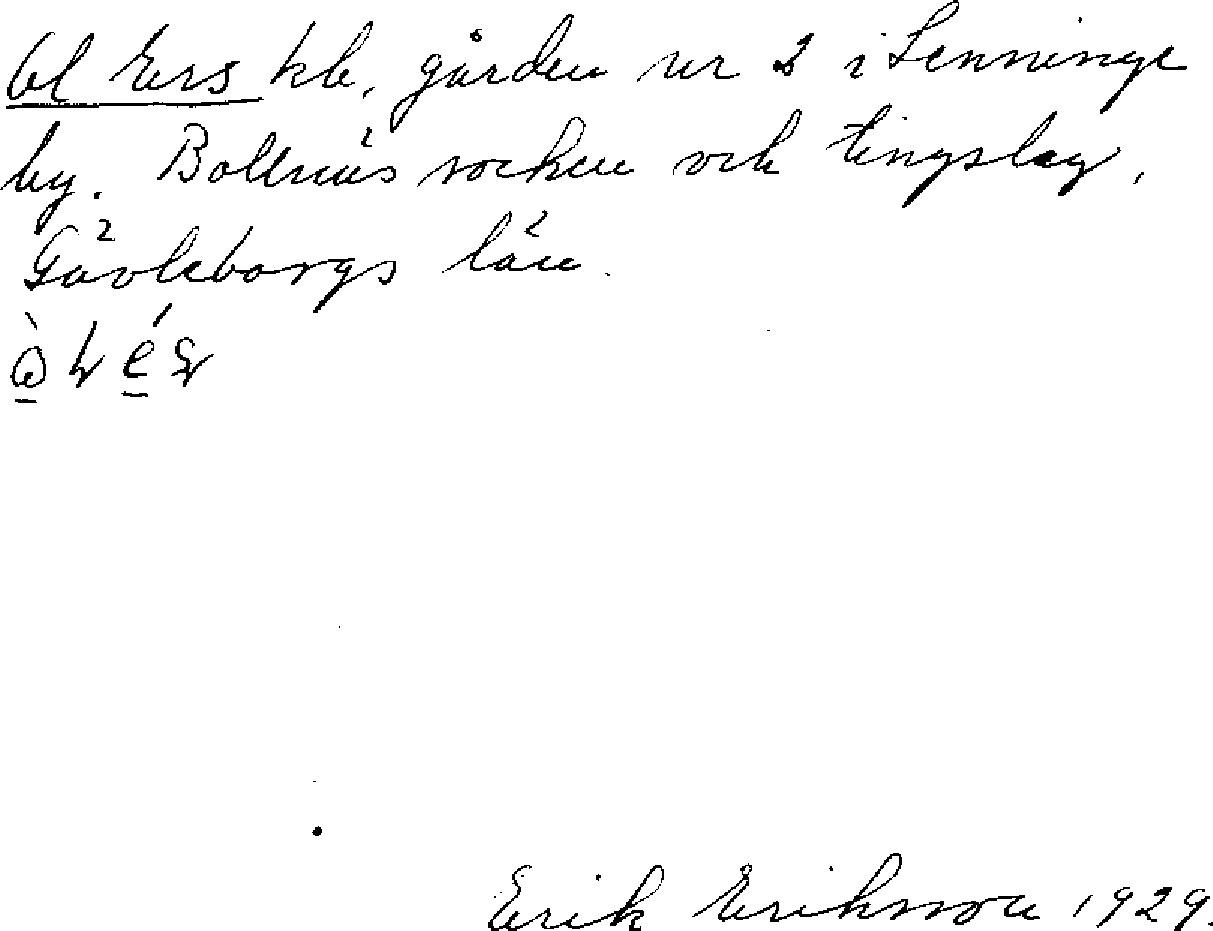 Ol Ers kb, gården nr 2 i Lenninge
by. Bollnäs socken och tingslag,
Gävleborgs län.
Erik Eriksson 1929.